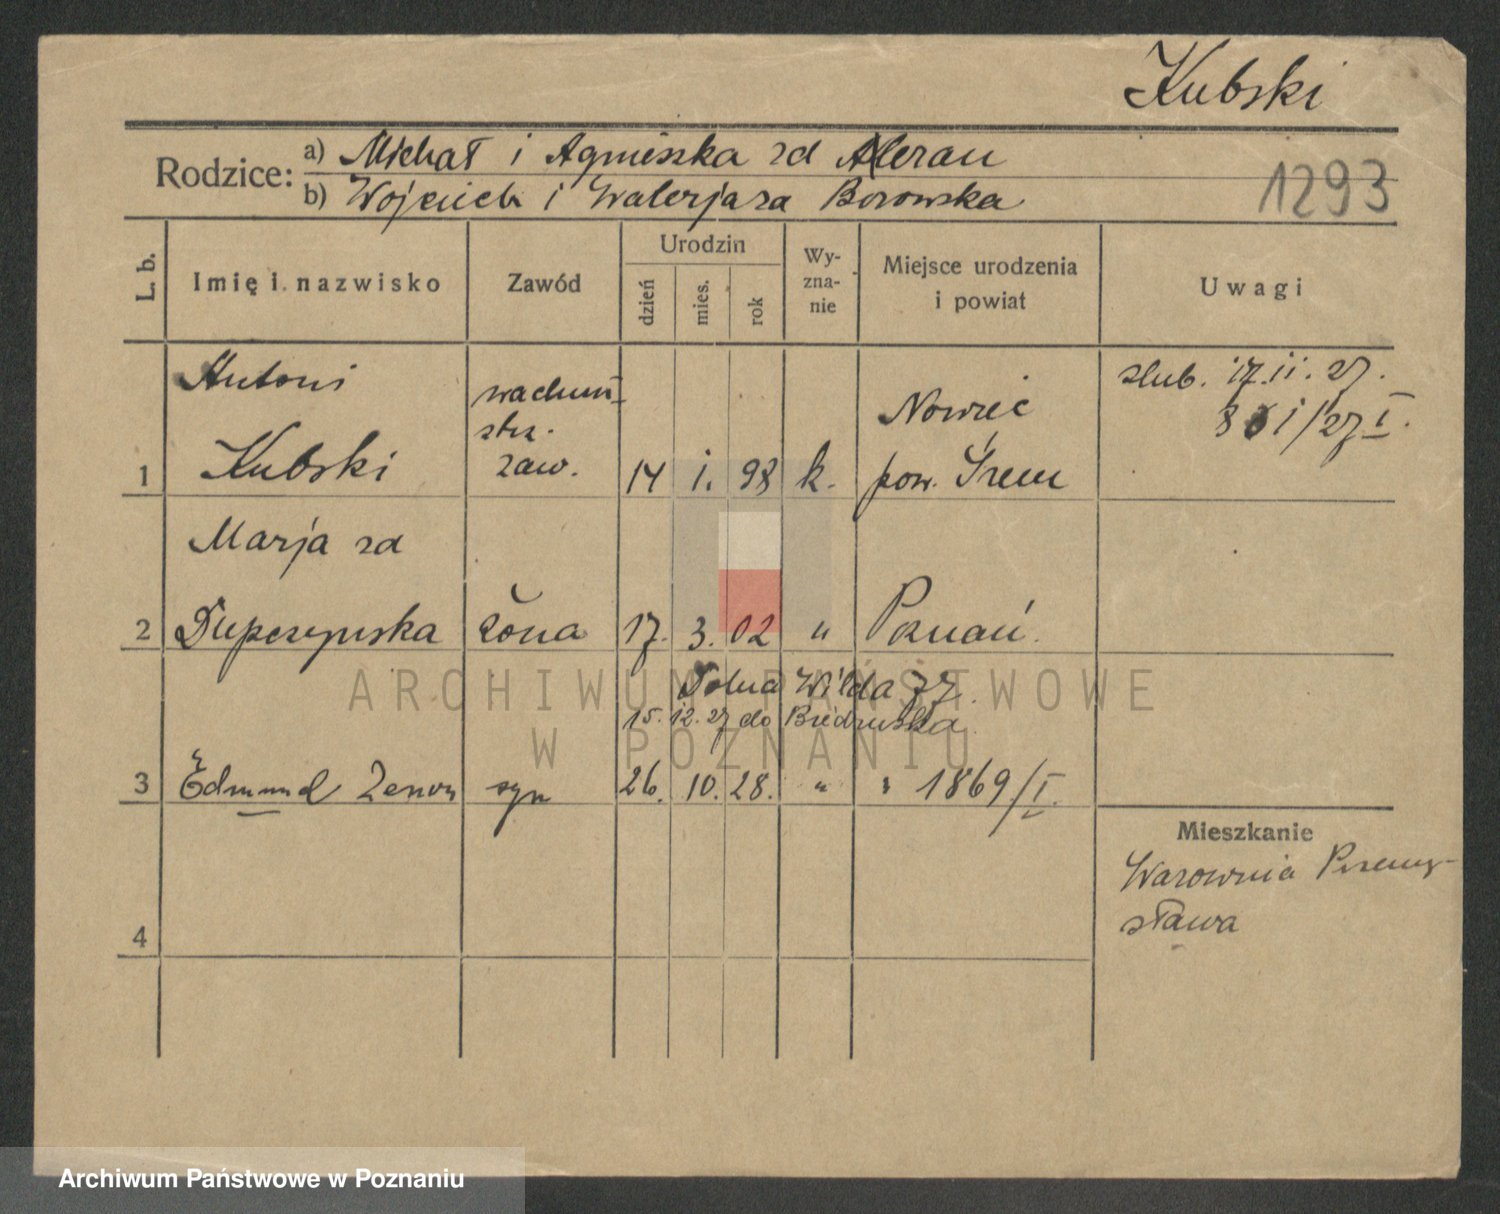 Kubski
Rodzice: a) Michał i Agnieszka zd
b) Wojciech i Walerja za Borowska
1293
L. b.
Imię i nazwisko
Zawód
Urodzin
dzień
mies.
rok
Wy-
zna-
nie
Miejsce urodzenia
i powiat
Uwagi
1
Antoni
Kubski
wachmi-
strz.
zaw.
14 i. 98 k.
Nowieć
pow. Śrem
slub. 17.ii.27.
/27 I.
2
Marja zd
Dupczyńska
żona
17. 3. 02 "
Poznań.
Dolna Wilda 77.
15. 12. 27 do Biedruska
3
Edmund Zenon
syn
26. 10. 28. " " 1869/I.
4
Mieszkanie
Warownia Przemy-
sława
ARCHIWUM PAŃSTWOWE
W POZNANIU
Archiwum Państwowe w Poznaniu